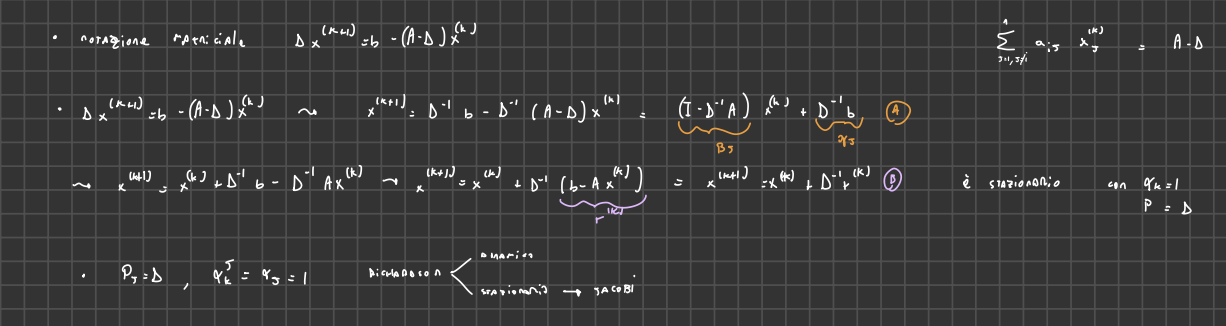 • notazione matriciale D x^(k+1) = b - (A-D) x^(k)
∑_{j=1, j≠i}^n a_ij x_j^(k) = A-D
• D x^(k+1) = b - (A-D) x^(k) ⇝ x^(k+1) = D^-1 b - D^-1 (A-D) x^(k) = (I - D^-1 A) x^(k) + D^-1 b A
B_J g_J
⇝ x^(k+1) = x^(k) + D^-1 b - D^-1 A x^(k) ⇝ x^(k+1) = x^(k) + D^-1 (b - A x^(k)) = x^(k+1) = x^(k) + D^-1 r^(k) B è stazionario con α_k = 1
r^(k) P = D
• P_J = D , α_k^J = α_J = 1 Richardson
dinamico
stazionario → Jacobi